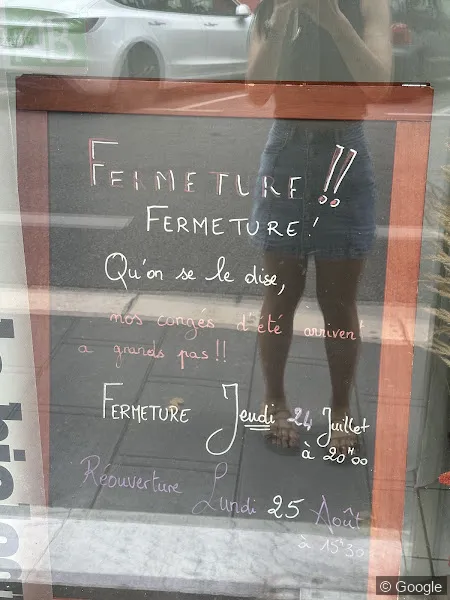 FERMETURE !!
FERMETURE !
Qu'on se le dise,
nos congés d'été arrivent
a grands pas !!
FERMETURE Jeudi 24 Juillet
à 20H00
Réouverture Lundi 25 Août
à 15H30
© Google